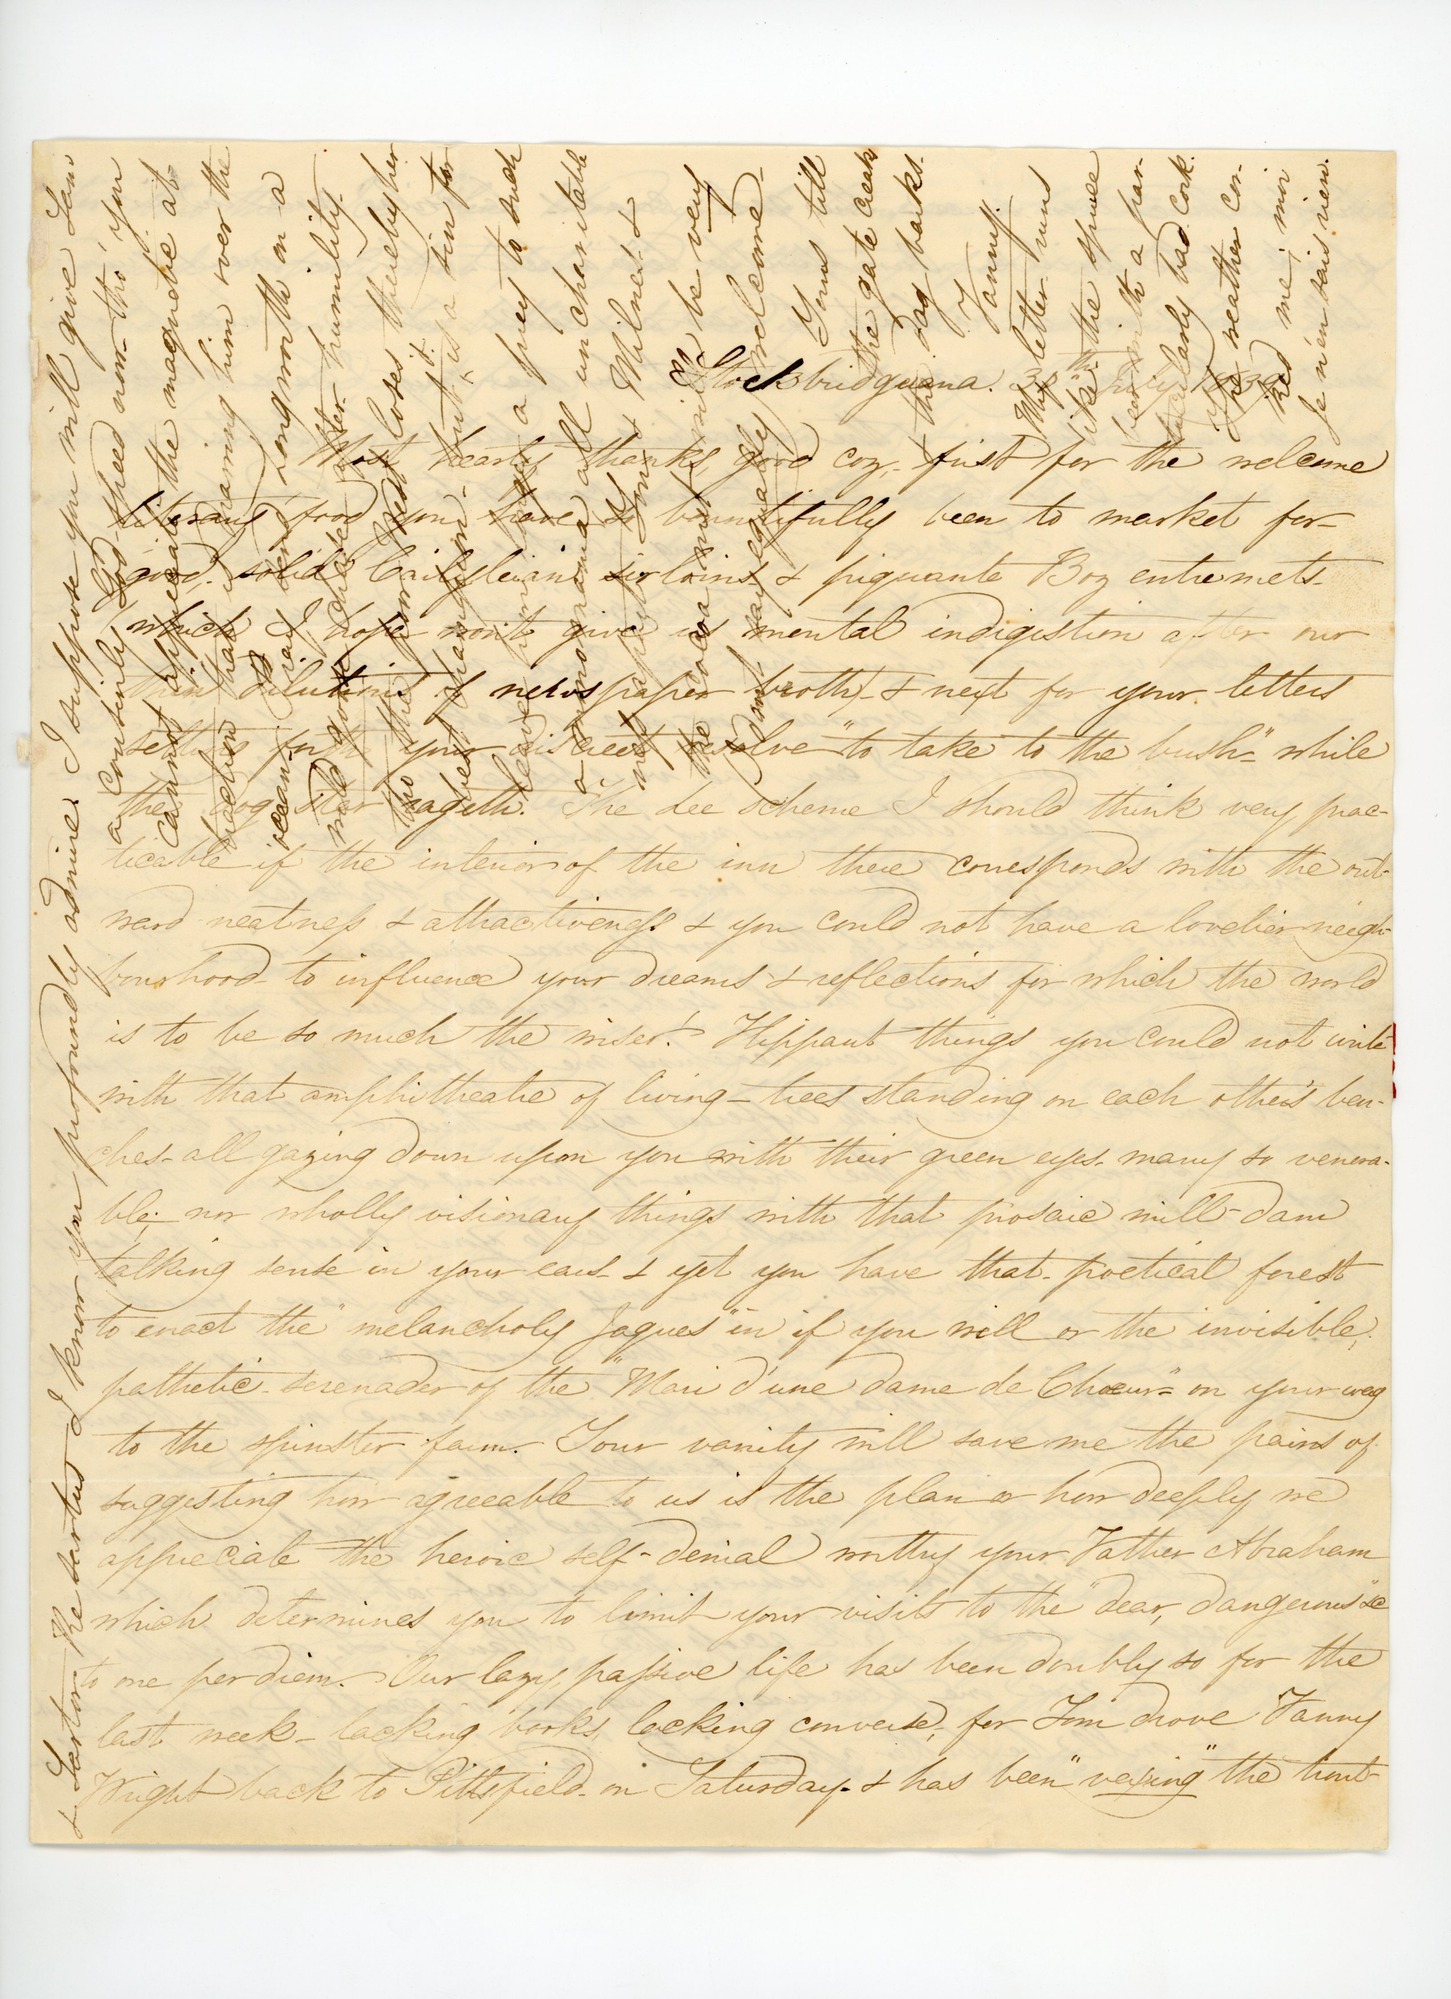 Stockbridguana. 30th July 1839.
Most hearty thanks, good coz, first for the welcome
literary food you have so bountifully been to market for-
good, solid Carlyleian sirloins & piquante Boz entremets-
which I hope won't give us mental indigestion after our
thin dilutions of newspaper broth,- & next for your letters
setting forth your discreet resolve "to take to the bush" while
the dog star rageth. The Lee scheme I should think very prac-
ticable if the interior of the inn there corresponds with the out-
ward neatness & attractiveness & you could not have a lovelier neigh-
bourhood to influence your dreams & reflections for which the world
is to be so much the wiser! Flippant things you could not write
with that amphitheatre of living-trees standing on each other's ben-
ches- all gazing down upon you with their green eyes- many so venera-
ble;- nor wholly visionary things with that prosaic mill-dam
talking sense in your ears- & yet you have that poetical forest
to enact the "melancholy Jaques" in if you will or the invisible,
pathetic- serenader of the "Mari d'une dame de Chœur"- on your way
to the spinster farm.- Your vanity will save me the pains of
suggesting how agreeable to us is the plan or how deeply we
appreciate the heroic self-denial worthy your Father Abraham
which determines you to limit your visits to the "dear, dangerous" &c
to one per diem.- Our lazy, passive life has been doubly so for the
last week- lacking books, lacking converse,- for Tom drove Fanny
Wright back to Pittsfield- on Saturday- & has been "vexing" the trout-
& Sartor Resartus I know you profoundly admire. I suppose you will give Sam
a cousinly God-speed now- tho' you
cannot appreciate the magnetive at-
traction warning him over the
ocean. Longworth in a
humility.
loses thereby her
but it is a sin for
leave a prey to such
a monodrama all uncharitable
Milnes &
be very
welcome-
Yours till
the gate creaks
& the dog barks.
Fanny.
My letter runs
like the spruce
beer with a par-
ticularly bad cork.
The weather con-
me, moi
Je n'en sais rien.